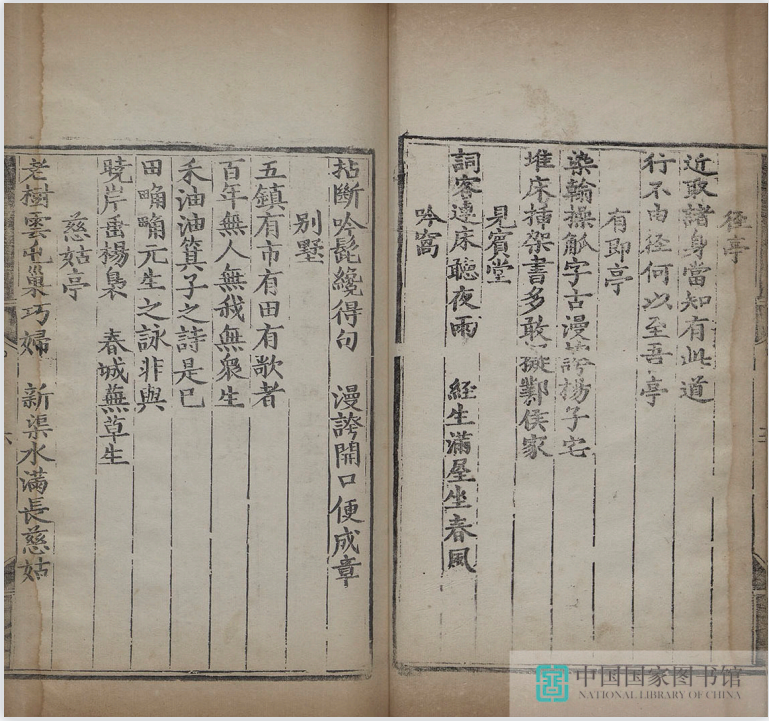 径亭
近取諸身當知有此道
行不由径何以至吾亭
有即亭
染翰操觚字古漫誇楊子宅
堆床插架書多敢擬鄴侯家
見賓堂
詞客連床聽夜雨 經生滿屋坐春風
吟窩
拈斷吟髭纔得句 漫誇開口便成章
别墅
五鎮有市有田有歌者
百年無人無我無衆生
禾油油箕子之詩是已
田畮畮元生之詠非與
曉岸垂楊裊 春城蕪草生
慈姑亭
老樹雲屯巢巧婦 新渠水滿長慈姑
中国国家图书馆
NATIONAL LIBRARY OF CHINA